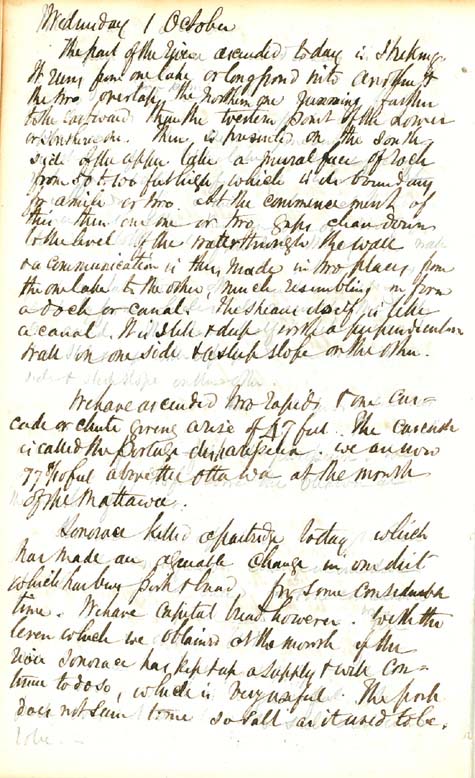 Wednesday 1 October
The part of the River ascended today is striking.
It runs from one lake or long pond into another &
the two overlap, the northern one running farther
to the eastward than the western point of the lower
or southern one. There is presented on the south
side of the upper lake a mural face of rock
from 50 to 100 feet high which is its boundary
for a mile or two. At the commencement of
this there are one or two gaps clean down
to the level of the water through the wall
& a communication is thus made in two places from
the one lake to the other, much resembling in form
a dock or canal. The stream itself is like
a canal. It is still & deep with a perpendicular
wall on one side & a steep slope on the other.
We have ascended two rapids & one cas=
cade or chute giving a rise of 17 feet. The cascade
is called the Portage de . We are now
77 feet above the Ottawa at the mouth
of the Mattawa.
killed a partridge today which
has made an agreeable change in our diet
which has been pork & bread, for some considerable
time. We have capital bread however. With the
leven which we obtained at the mouth of the
River has kept up a supply & will con=
tinue to do so, which is very useful. The pork
does not seem to me so salt as it used to be.